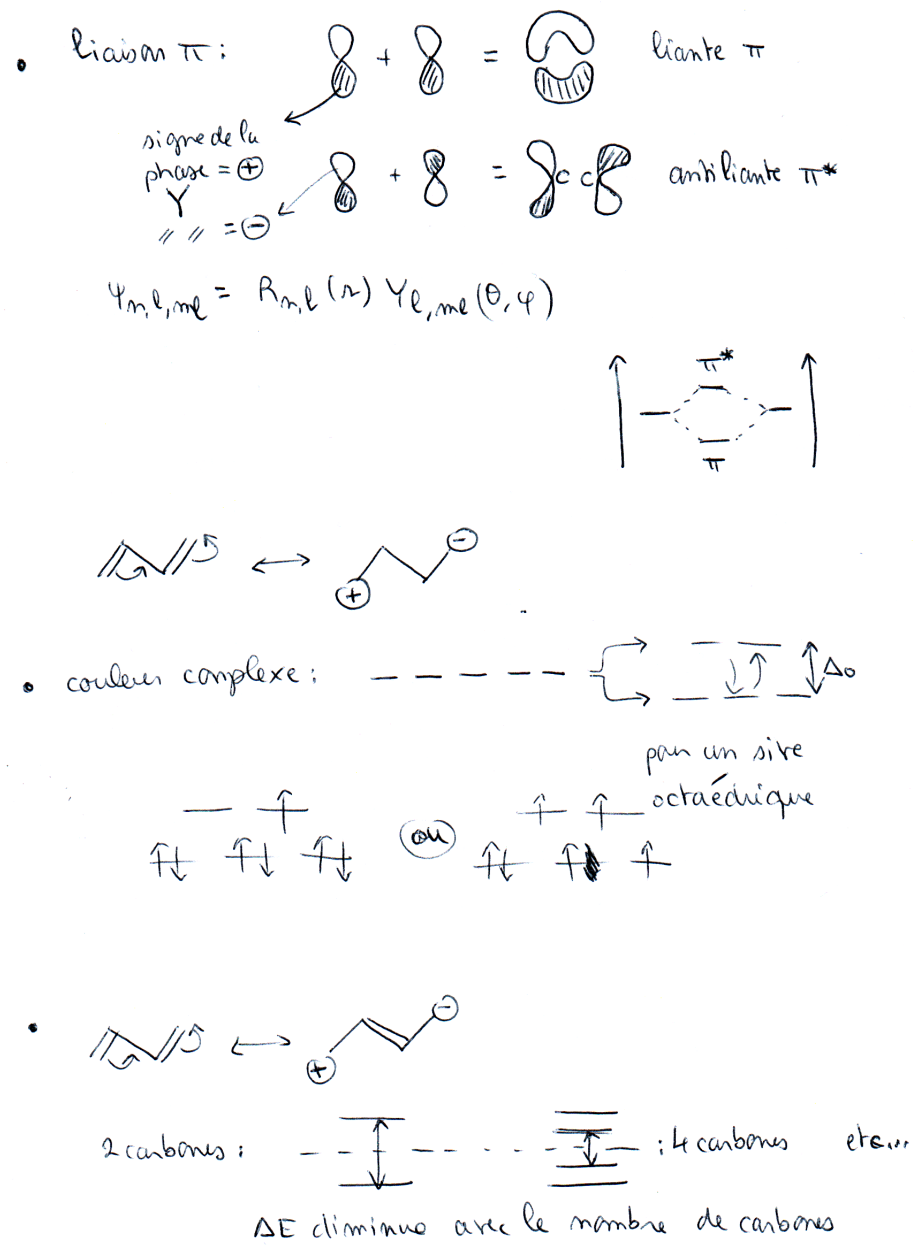 • liaison π : + = liante π
signe de la
phase = ⊕
Y
〃 〃 = ⊖
+ = C C antiliante π*
Ψn,l,ml = Rn,l (r) Yl,ml (θ, φ)
π*
π
⊕ ↔ ⊖
• couleur complexe : Δo
pour un site
octaédrique
ou
• ↔ ⊕ ⊖
2 carbones : : 4 carbones etc...
ΔE diminue avec le nombre de carbones